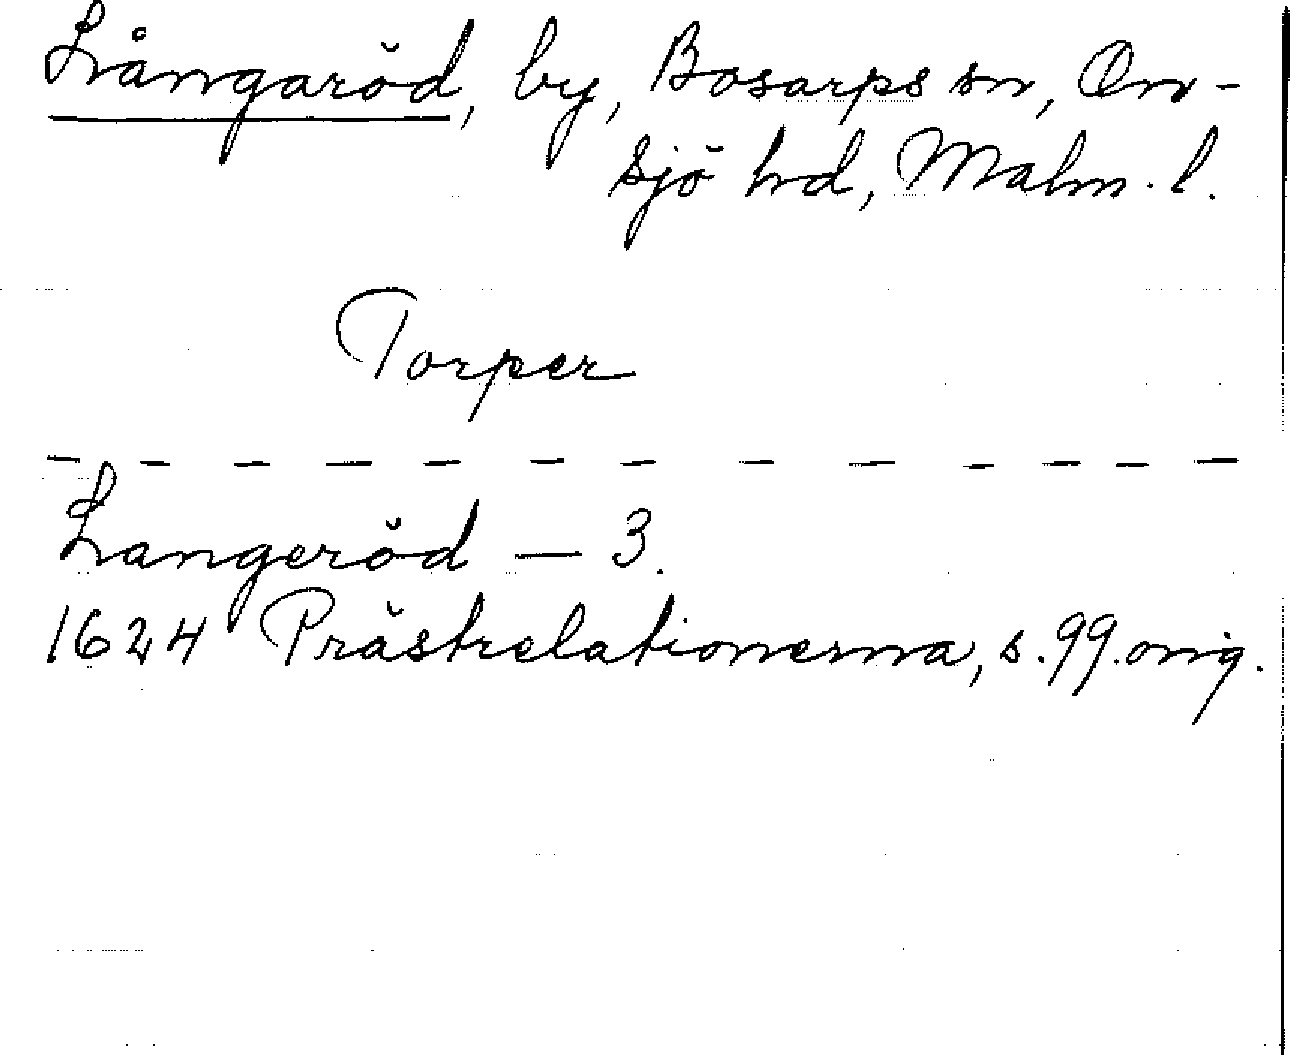 Långaröd, by, Bosarps sn, On-
sjö hd, Malm. l.
Torper
Langeröd — 3.
1624 Prästrelationerna, s. 99. orig.